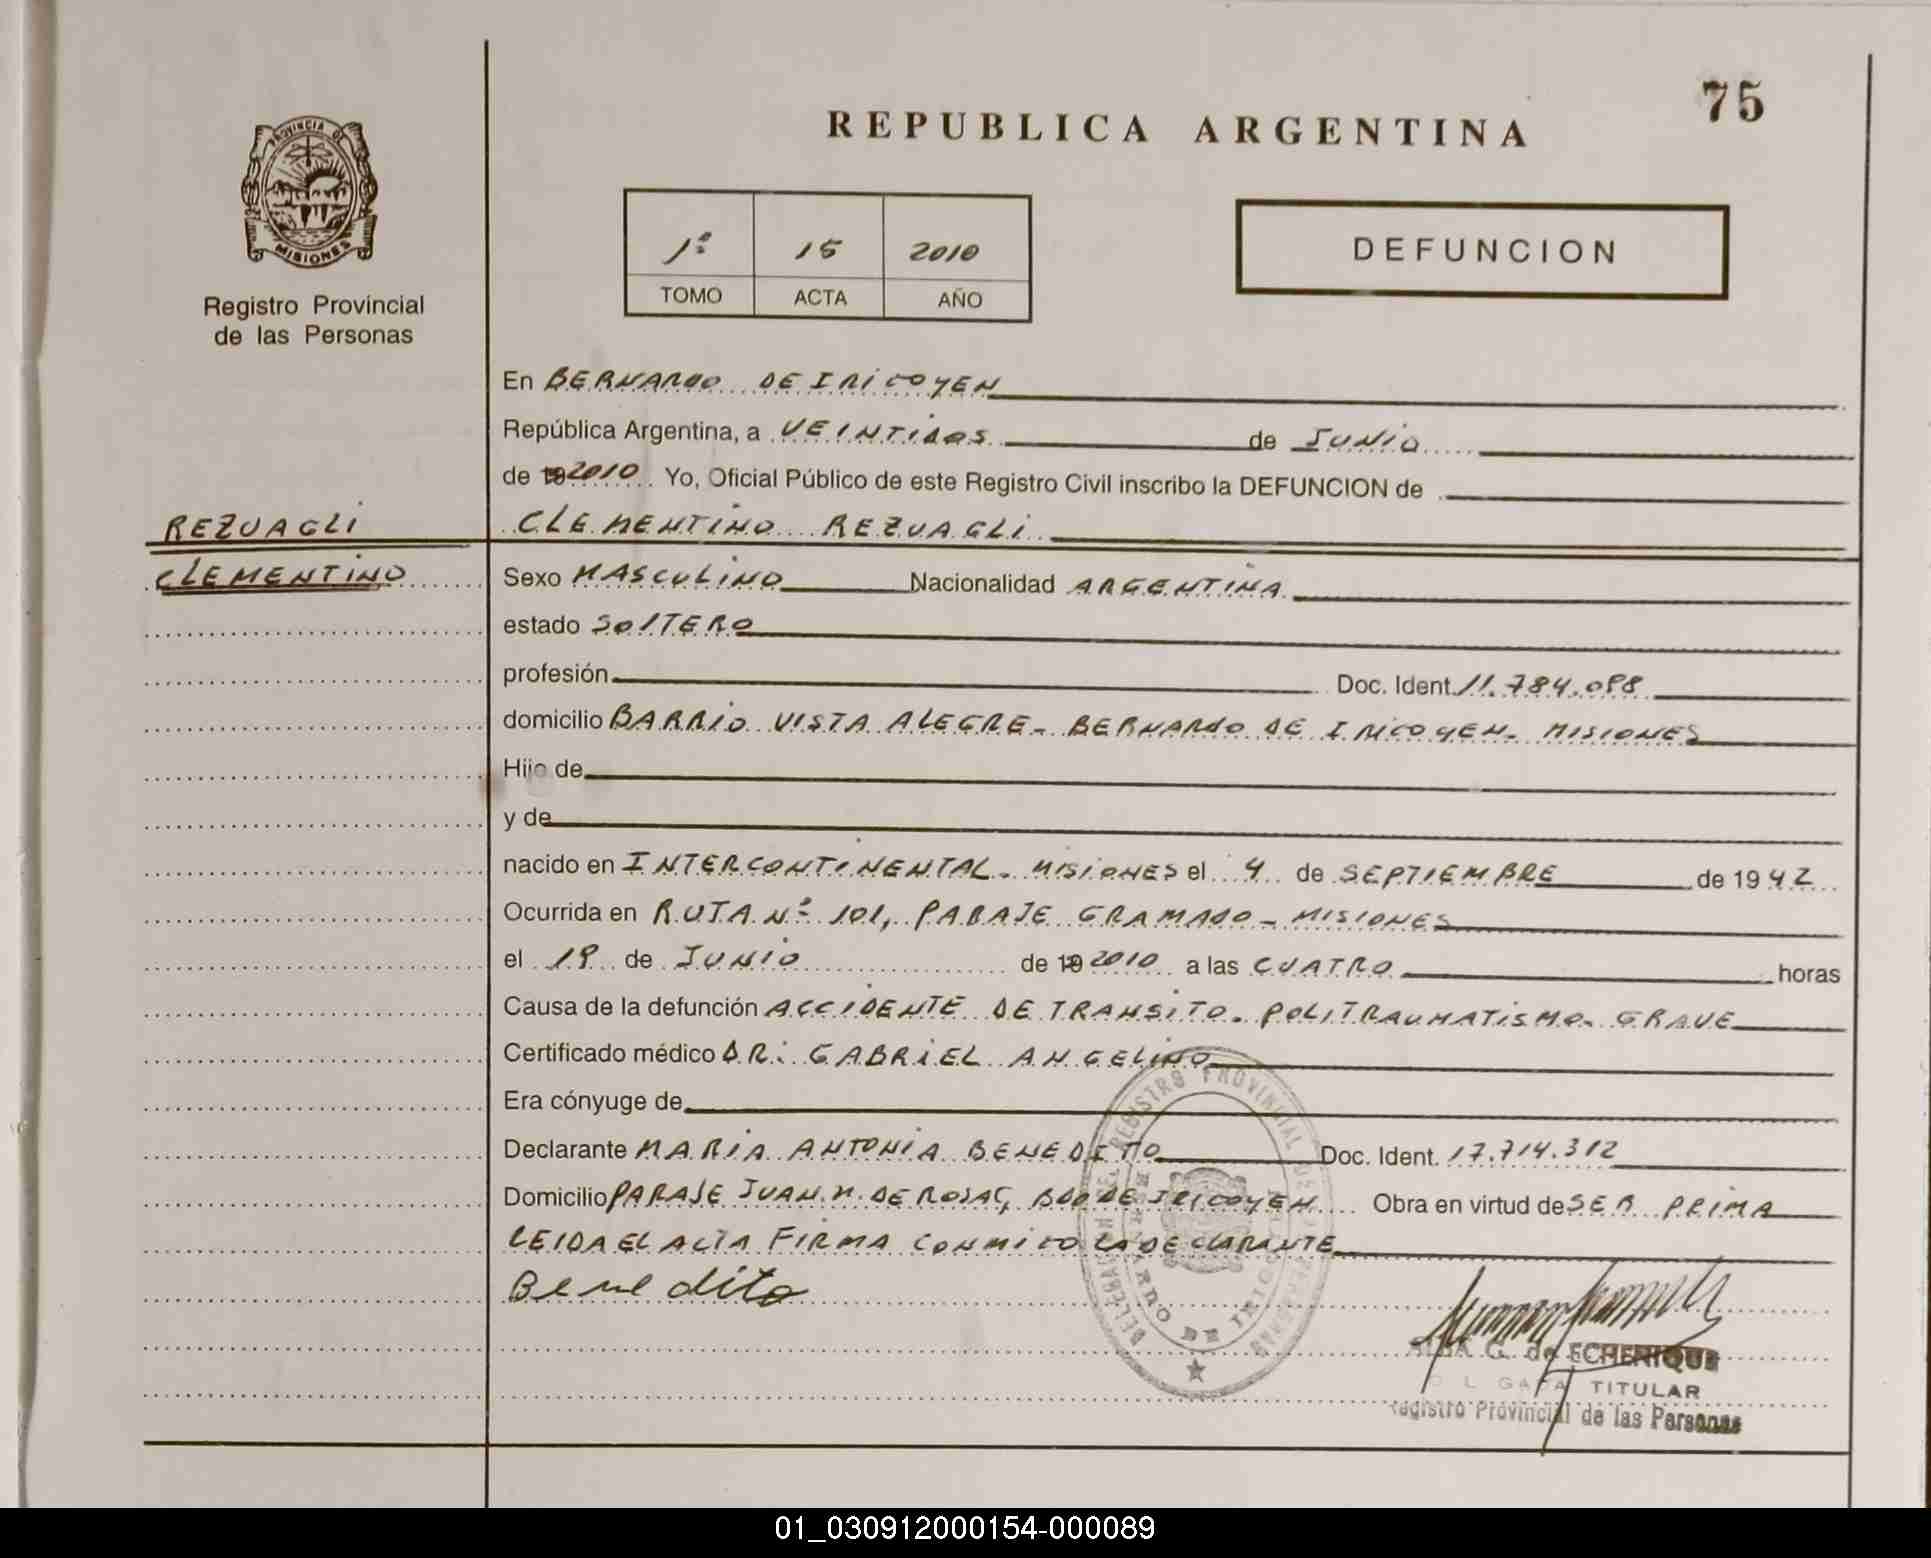 75
REPUBLICA ARGENTINA
PROVINCIA DE
MISIONES
Registro Provincial
de las Personas
1º 15 2010
TOMO ACTA AÑO
DEFUNCION
En BERNARDO DE IRIGOYEN
República Argentina, a VEINTIDOS de JUNIO
de 2010 Yo, Oficial Público de este Registro Civil inscribo la DEFUNCION de
REZUAGLI
CLEMENTINO
CLEMENTINO REZUAGLI
Sexo MASCULINO Nacionalidad ARGENTINA
estado SOLTERO
profesión Doc. Ident. 11.784.098
domicilio BARRIO VISTA ALEGRE - BERNARDO DE IRIGOYEN - MISIONES
Hijo de
y de
nacido en INTERCONTINENTAL - MISIONES el 4 de SEPTIEMBRE de 1942
Ocurrida en RUTA Nº 101, PARAJE GRAMADO - MISIONES
el 19 de JUNIO de 2010 a las CUATRO horas
Causa de la defunción ACCIDENTE DE TRANSITO - POLITRAUMATISMO - GRAVE
Certificado médico DR. GABRIEL ANGELINO
Era cónyuge de
Declarante MARIA ANTONIA BENEDITO Doc. Ident. 17.714.312
Domicilio PARAJE JUAN M. DE ROSAS, BDO DE IRIGOYEN Obra en virtud de SER PRIMA
LEIDA EL ACTA FIRMA CONMIGO LA DECLARANTE
Benedito
REGISTRO PROVINCIAL DE
BERNARDO DE IRIGOYEN
ALBA G. de ECHENIQUE
TITULAR
Registro Provincial de las Personas
01_030912000154-000089